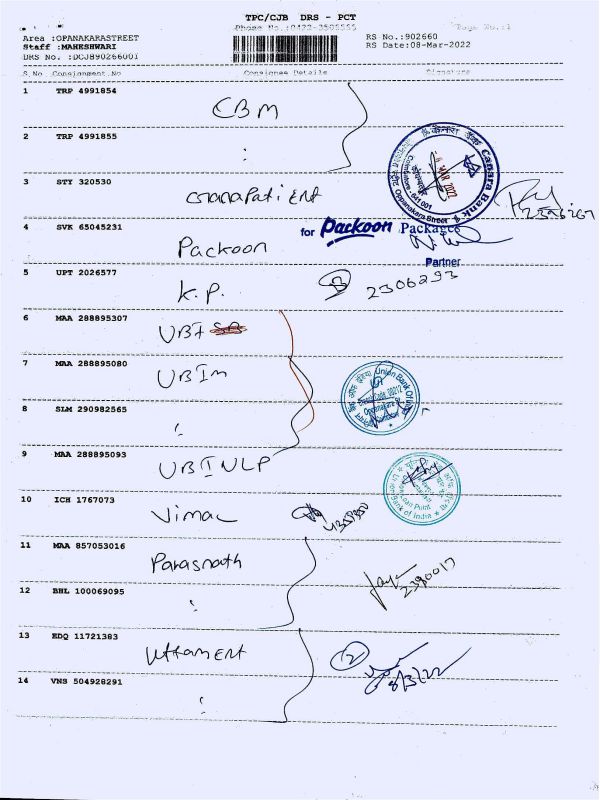 TPC/CJB DRS - PCT
Phone No.:0422-3505555
Page No.:1
Area :OPANAKARASTREET
Staff :MAHESHWARI
DRS No. :DCJB90266001
RS No.:902660
RS Date:08-Mar-2022
S.No Consignment.No Consignee Details Signature
1 TRP 4991854 CBM
2 TRP 4991855 :
Canara Bank
MAR 2022
Coimbatore - 641 001
Oppanakara Street
3 STY 320530 Ganapati Ent
4 SVK 65045231 Packoon
for Packoon Packages
Partner
5 UPT 2026577 K.P.
2306293
6 MAA 288895307 UBI
7 MAA 288895080 UBIM
Union Bank Of India
8 SLM 290982565 :
9 MAA 288895093 UBI NLP
Bank of India
10 ICH 1767073 Vimal
11 MAA 857053016 Parasnath
2390017
12 BHL 100069095 :
13 EDQ 11721383 Uttam Ent
2
8/3/22
14 VNS 504928291 :